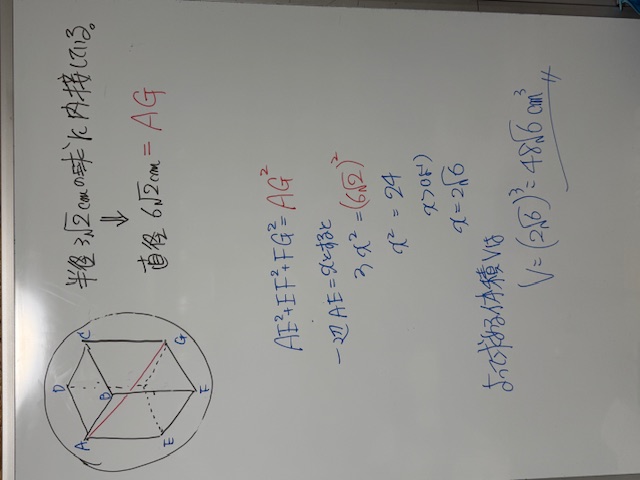 半径3√2cmの球に内接している。
⇓
直径 6√2cm = AG
A
B
C
D
E
F
G
AE²+EF²+FG²=AG²
一辺AE=xとすると
3x²=(6√2)²
x²=24
x>0より
x=2√6
よって求める体積Vは
V=(2√6)³=48√6cm³